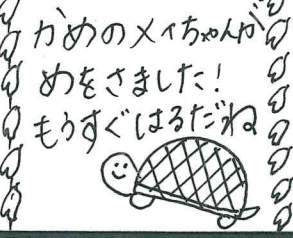 かめのメイちゃんが
めをさました!
もうすぐはるだね